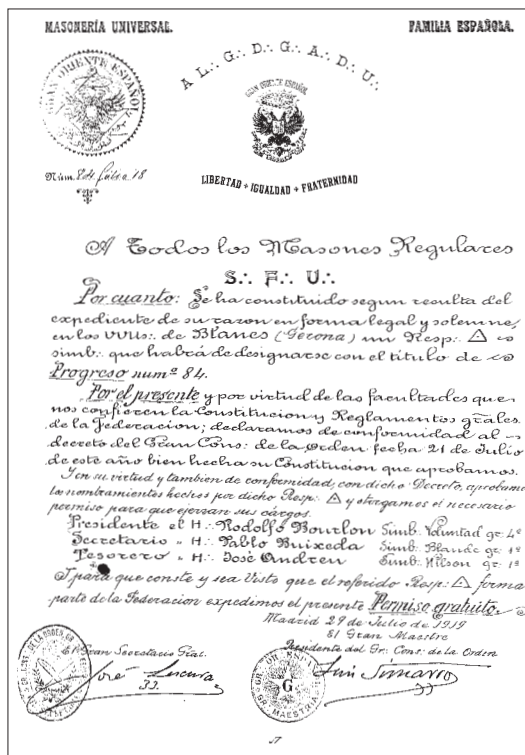 MASONERÍA UNIVERSAL.
FAMILIA ESPAÑOLA.
A.·. L.·. G.·. D.·. G.·. A.·. D.·. U.·.
GRAN ORIENTE ESPAÑOL
GRAN ORIENTE ESPAÑOL
Núm. 84 folio 18
LIBERTAD + IGUALDAD + FRATERNIDAD
A Todos los Masones Regulares
S.·. F.·. U.·.
Por cuanto: Se ha constituido segun resulta del
expediente de su razon en forma legal y solemne,
en los VVlls.·. de Blanes (Gerona) un Resp.·. △
simb.·. que habrá de designarse con el título de
Progreso num.º 84.
Por el presente y por virtud de las facultades que
nos confieren la Constitucion y Reglamentos grales.
de la Federacion; declaramos de conformidad al
decreto del Gran Cons.·. de la Orden fecha 21 de Julio
de este año bien hecha su Constitucion que aprobamos.
Y en su virtud y tambien de conformidad, con dicho Decreto, aprobamos
los nombramientos hechos por dicho Resp.·. △ y otorgamos el necesario
permiso para que ejerzan sus cargos.
Presidente el H.·. Rodolfo Bourlon Simb. Voluntad gr. 4º
Secretario " H.·. Pablo Buixeda Simb. Blande gr. 1º
Tesorero " H.·. José Andreu Simb. Wilson gr. 1º
Y para que conste y sea Visto que el referido Resp.·. △ forma
parte de la Federacion expedimos el presente Permiso gratuito.
Madrid 29 de Julio de 1919
El Gran Maestre
Presidente del Gr.·. Cons.·. de la Orden
El Gran Secretario Gral.
José Lescura
33.
Luis Simarro
G